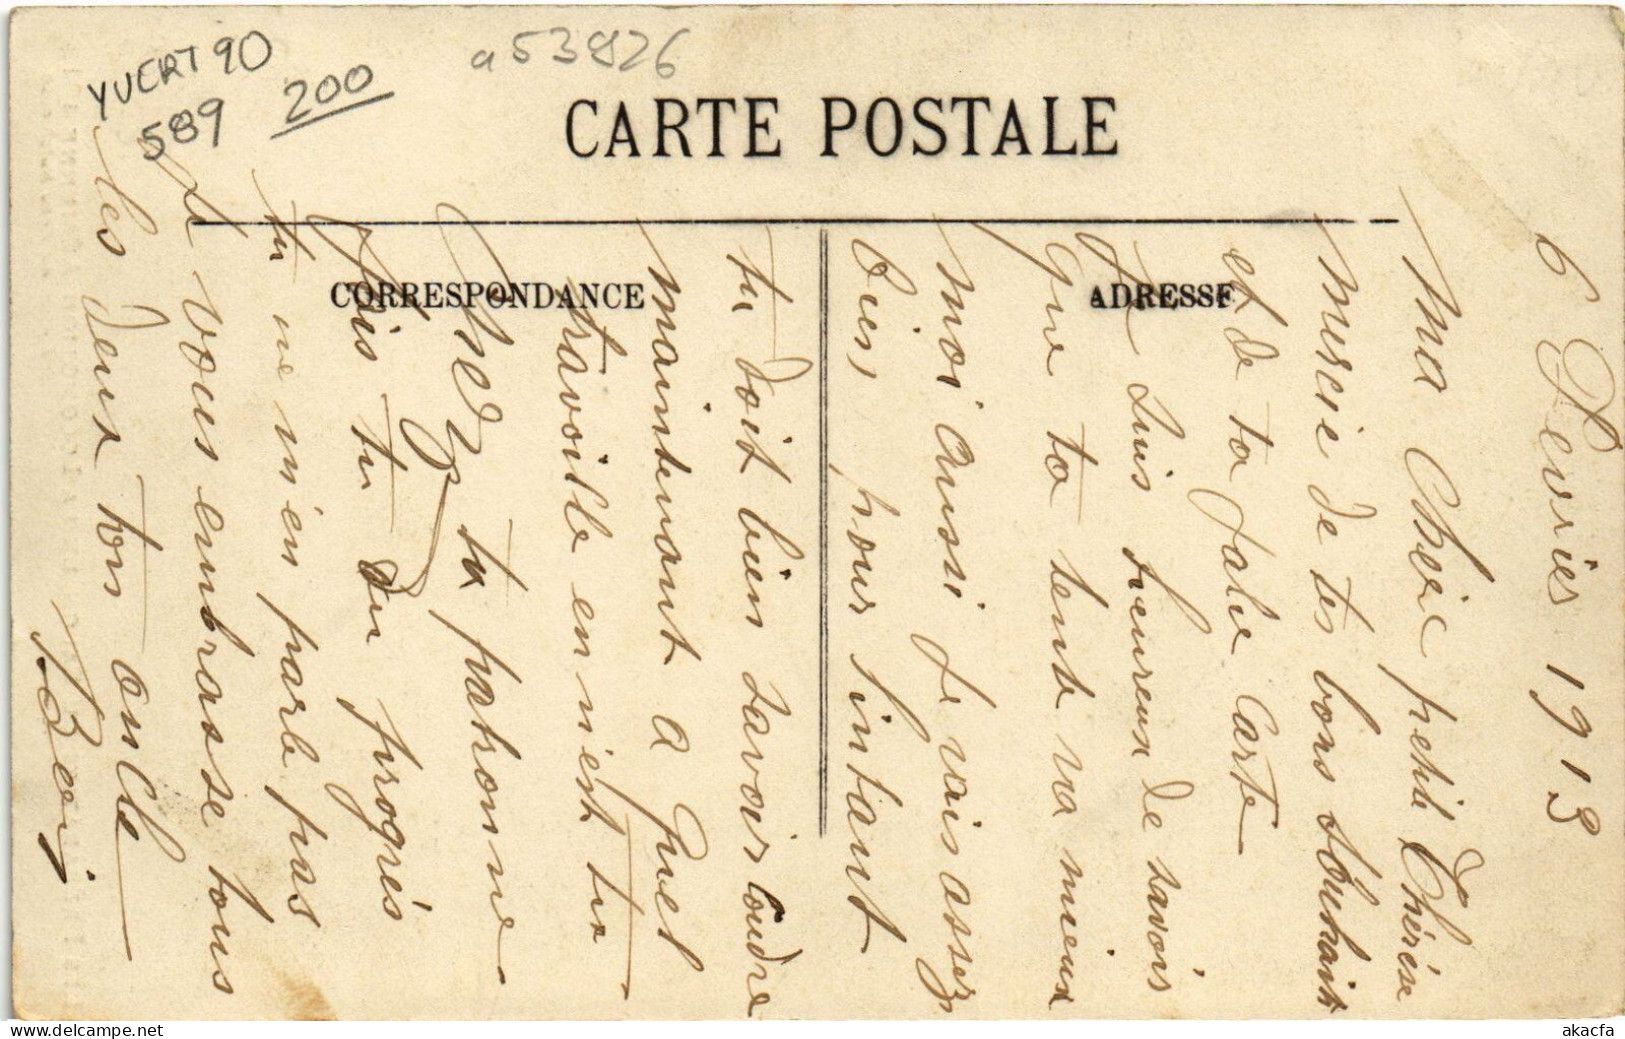 YVERT 90
589
200
a53826
CARTE POSTALE
CORRESPONDANCE
ADRESSE
6 Fevrier 1913
Ma Chère petite Thérése
Mercie de tes bons Souhait
et de ta Jolie Carte
Je suis heureux de savoir
que ta tente va mieux
moi aussi je vais assez
bien pour l'intant
tu doit bien savoir coudre
maintenant a quel
travaille en n'est tu
chez ta patronne
fais tu du progrés
tu ne m'en parle pas
Je vous embrasse tous
les deux ton oncle
akacfa